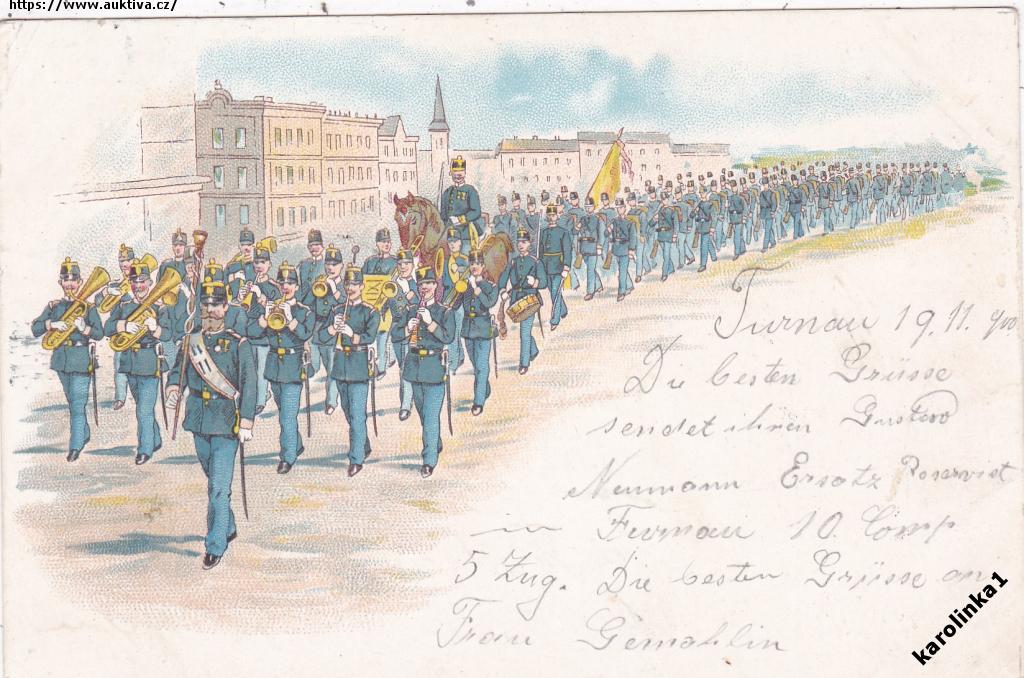 https://www.auktiva.cz/
Turnau 19. 11. 900
Die besten Grüsse
sendet ihnen Gustav
Neumann Ersatz Reservist
in Turnau 10. Comp
5 Zug. Die besten Grüsse an
Frau Gemahlin
karolinka1